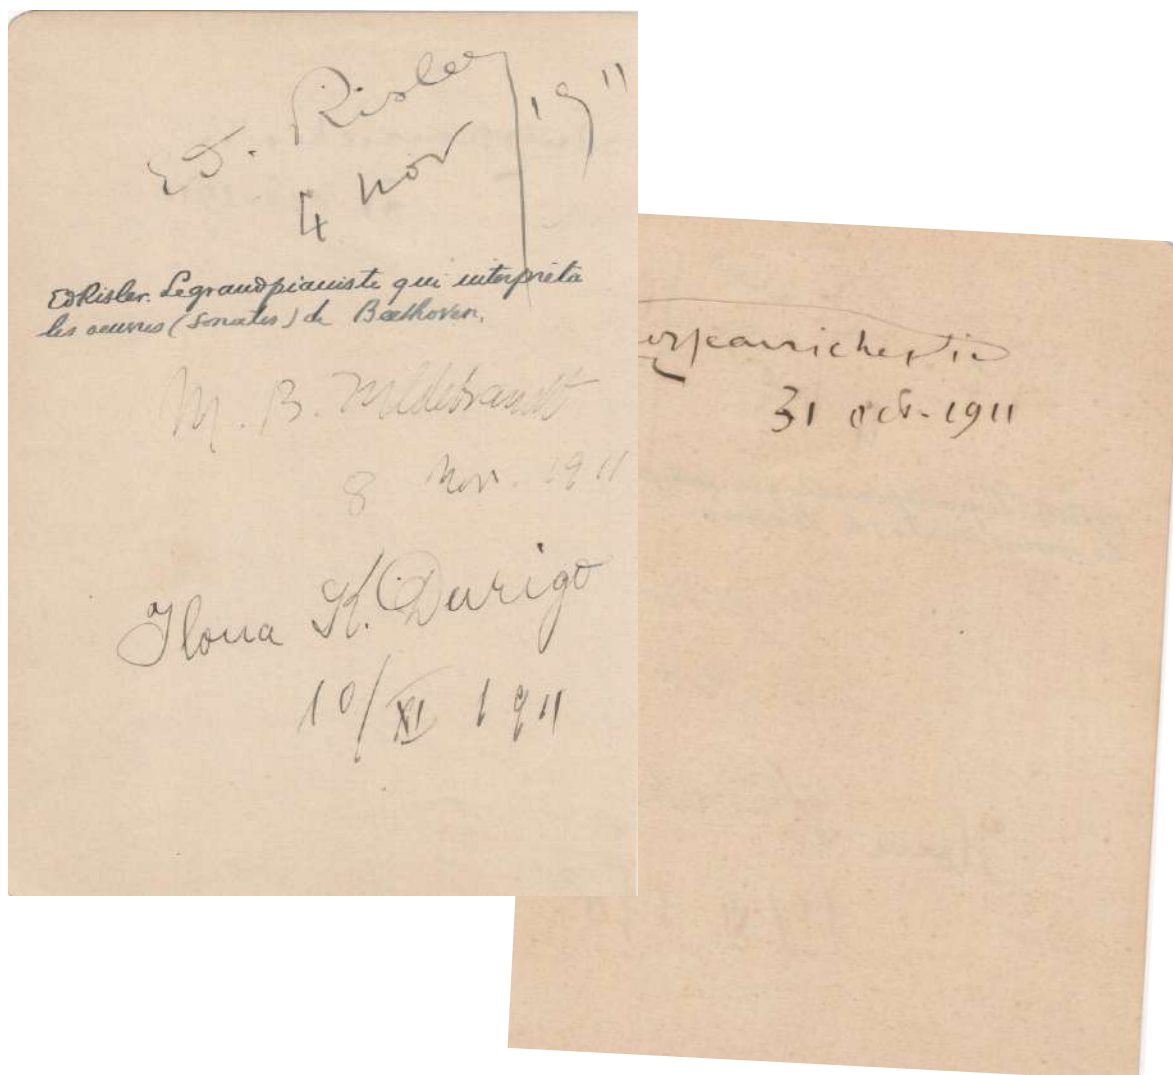 Ed. Risler
4 nov 1911
Ed Risler. Le grand pianiste qui interpréta
les oeuvres (Sonates) de Beethoven.
M. B. Hildebrandt
8 Nov. 1911
Ilona K. Durigo
10/XI 1911
31 oct. 1911